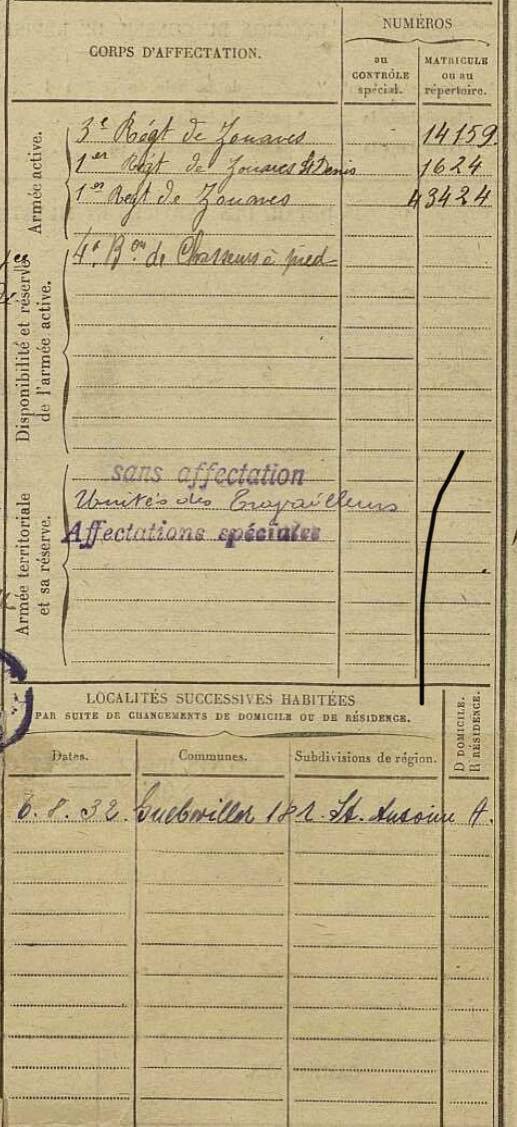 NUMÉROS
CORPS D'AFFECTATION.
au
CONTRÔLE
spécial.
MATRICULE
ou au
répertoire.
Armée active.
3e Régt de Zouaves 14159.
1er Régt de Zouaves St Denis 1624
1er Regt de Zouaves 43424
Disponibilité et réserve
de l'armée active.
4e Bon de Chasseurs à pied
Armée territoriale
et sa réserve.
sans affectation
Unités des Travailleurs
Affectations spéciales
LOCALITÉS SUCCESSIVES HABITÉES
PAR SUITE DE CHANGEMENTS DE DOMICILE OU DE RÉSIDENCE.
D DOMICILE.
R RÉSIDENCE.
Dates.
Communes.
Subdivisions de région.
6.8.32. Guebwiller 18 r. St. Antoine